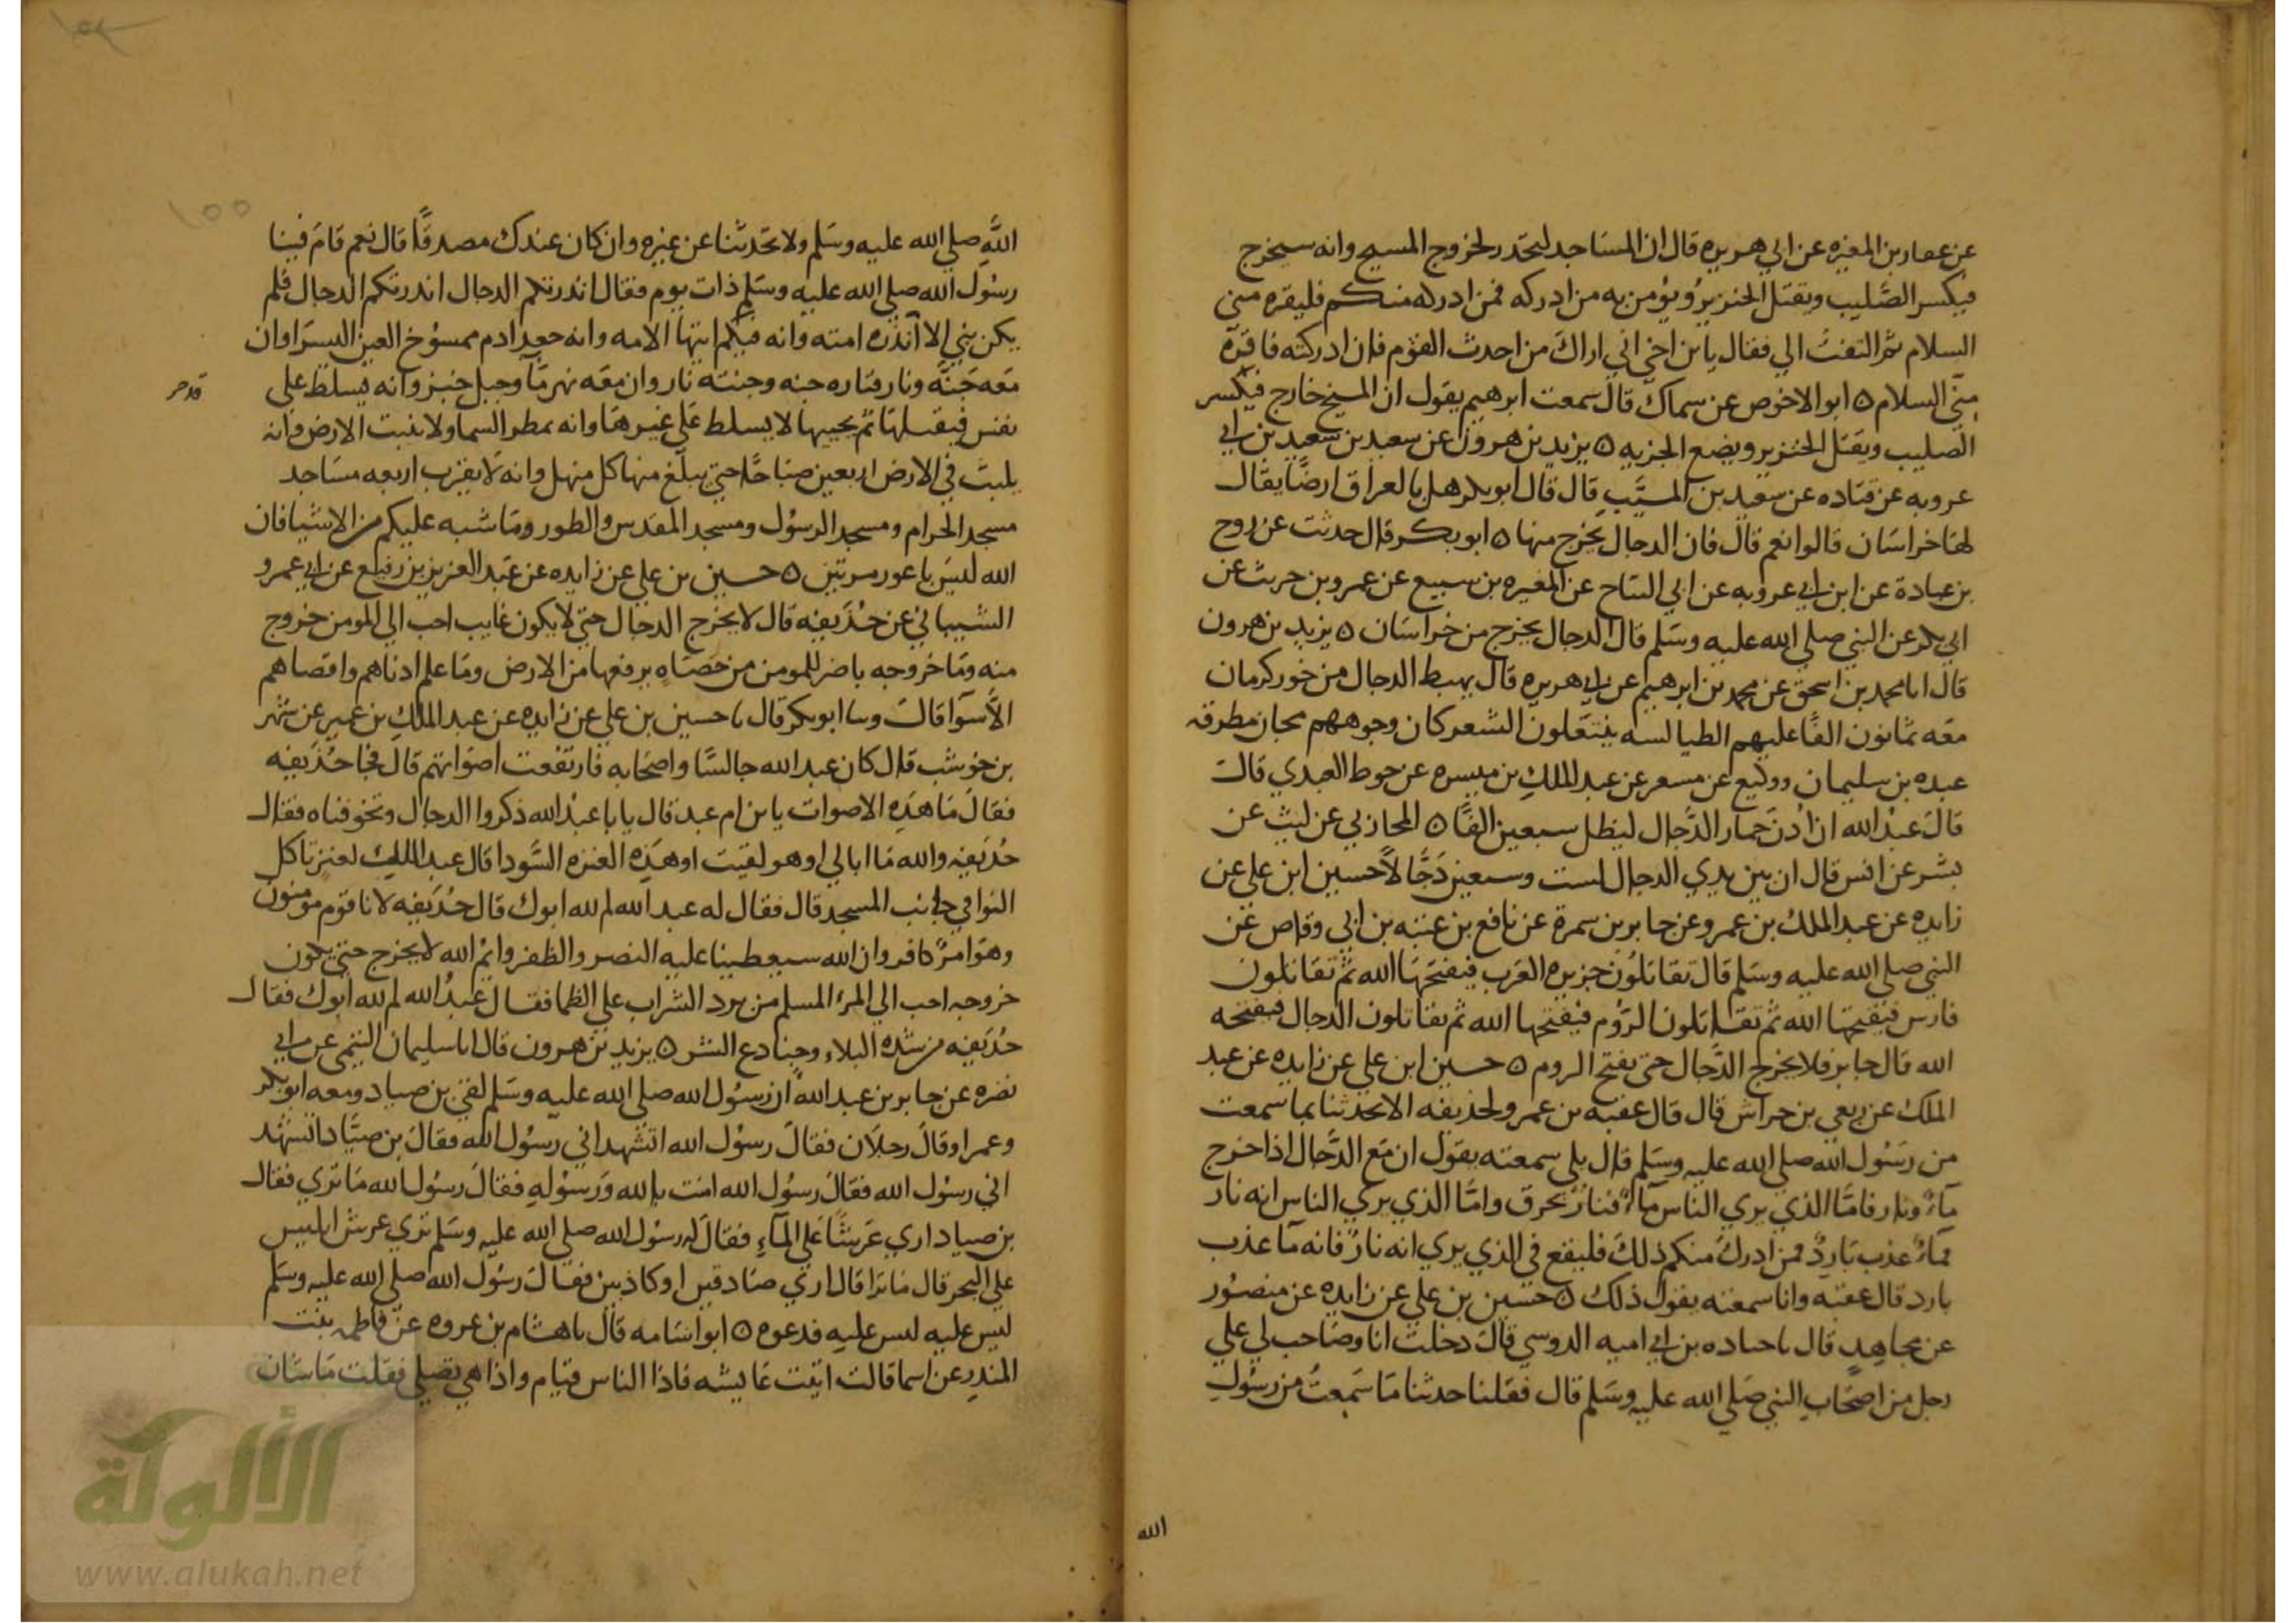 عن عمار بن المغيره عن ابي هريره قال ان المساجد لتحدد لخروج المسيح وانه سيخرج
فيكسر الصليب ويقتل الخنزير ويؤمن به من ادركه فمن ادركه منكم فليقره مني
السلام ثم التفت الي فقال يا بن اخي اني اراك من احدث القوم فان ادركته فاقره
مني السلام ٥ ابو الاخوص عن سماك قال سمعت ابرهيم يقول ان المسيح خارج فيكسر
الصليب ويقتل الخنزير ويضع الجزيه ٥ يزيد بن هرون عن سعيد بن سعيد بن ابي
عروبه عن قتاده عن سعيد بن المسيب قال قال ابو بكر هل بالعراق ارضا يقال
لها خراسان قالوا نعم قال فان الدجال يخرج منها ٥ ابو بكر قال حدثت عن روح
بن عبادة عن ابن ابي عروبه عن ابي التياح عن المغيره بن سبيع عن عمرو بن حريث عن
ابي بكر عن النبي صلي الله عليه وسلم قال الدجال يخرج من خراسان ٥ يزيد بن هرون
قال انا محمد بن اسحق عن محمد بن ابرهيم عن ابي هريره قال يهبط الدجال من خور كرمان
معه ثمانون الفا عليهم الطيالسه ينتعلون الشعر كان وجوههم مجان مطرقه
عبده بن سليمان ووكيع عن مسعر عن عبد الملك بن ميسره عن حوط العبدي قال
قال عبد الله ان اذن حمار الدجال ليظل سبعين الفا ٥ المحاربي عن ليث عن
بشر عن انس قال ان بين يدي الدجال لست وسبعين دجالا حسين ابن علي عن
زايده عن عبد الملك بن عمرو عن جابر بن سمرة عن نافع بن عتبه بن ابي وقاص عن
النبي صلي الله عليه وسلم قال تقاتلون جزيره العرب فيفتحها الله ثم تقاتلون
فارس فيفتحها الله ثم تقاتلون الروم فيفتحها الله ثم تقاتلون الدجال فيفتحه
الله قال جابر فلا يخرج الدجال حتي يفتح الروم ٥ حسين ابن علي عن زايده عن عبد
الملك عن ربعي بن حراش قال قال عقبه بن عمرو لحذيفه الا تحدثنا بما سمعت
من رسول الله صلي الله عليه وسلم قال بلي سمعته يقول ان مع الدجال اذا خرج
ماء ونار فاما الذي يري الناس ماء فنار تحرق واما الذي يري الناس انه نار
فماء عذب بارد فمن ادرك منكم ذلك فليقع في الذي يري انه نار فانه ما عذب
بارد قال عقبه وانا سمعته يقول ذلك ٥ حسين بن علي عن زايده عن منصور
عن مجاهد قال نا جناده بن ابي اميه الدوسي قال دخلت انا وصاحب لي علي
رجل من اصحاب النبي صلي الله عليه وسلم قال فقلنا حدثنا ما سمعت من رسول
الله
الله صلي الله عليه وسلم ولا تحدثنا عن غيره وان كان عندك مصدقا قال نعم قام فينا
رسول الله صلي الله عليه وسلم ذات يوم فقال انذرتكم الدجال انذرتكم الدجال فلم
يكن نبي الا انذره امته وانه فيكم ايتها الامه وانه جعد ادم ممسوخ العين اليسرا وان
معه جنه ونار فناره جنه وجنته نار وان معه نهر ما وجبل خبز وانه يسلط علي
نفس فيقتلها ثم يحييها لا يسلط علي غيرها وانه يمطر السما ولا ينبت الارض وانه
يلبث في الارض اربعين صباحا حتي يبلغ منها كل منهل وانه لا يقرب اربعه مساجد
مسجد الحرام ومسجد الرسول ومسجد المقدس والطور وما شبه عليكم من الاشيا فان
الله ليس باعور مرتين ٥ حسين بن علي عن زايده عن عبد العزيز بن رفيع عن ابي عمرو
الشيباني عن حذيفه قال لا يخرج الدجال حتي لا يكون غايب احب الي المومن خروج
منه وما خروجه باضر للمومن من حصاه يرفعها من الارض وما علم ادناهم واقصاهم
الا سوا قال ونا ابو بكر قال نا حسين بن علي عن زايده عن عبد الملك بن عمير عن شهر
بن حوشب قال كان عبد الله جالسا واصحابه فارتفعت اصواتهم قال فجا حذيفه
فقال ما هذه الاصوات يا بن ام عبد قال يا با عبد الله ذكروا الدجال وتخوفناه فقال
حذيفه والله ما ابالي اهو لقيت او هذه العنزه السودا قال عبد الملك لعنز تاكل
النوا في جانب المسجد قال فقال له عبد الله لم لله ابوك قال حذيفه لانا قوم مومنون
وهو امرء كافر وان الله سيعطينا عليه النصر والظفر وايم الله لا يخرج حتي يكون
خروجه احب الي المرء المسلم من برد الشراب علي الظما فقال عبد الله لم لله ابوك فقال
حذيفه من شده البلاء وجنادع الشر ٥ يزيد بن هرون قال انا سليمان التيمي عن ابي
نضره عن جابر بن عبد الله ان رسول الله صلي الله عليه وسلم لقي بن صياد ومعه ابو بكر
وعمر او قال رجلان فقال رسول الله اتشهد اني رسول الله فقال بن صياد اتشهد
اني رسول الله فقال رسول الله امنت بالله ورسوله فقال رسول الله ما تري فقال
بن صياد اري عرشا علي الماء فقال له رسول الله صلي الله عليه وسلم تري عرش ابليس
علي البحر قال ما ترا قال اري صادقين او كاذبين فقال رسول الله صلي الله عليه وسلم
لبس عليه لبس عليه فدعوه ٥ ابو اسامه قال نا هشام بن عروه عن فاطمه بنت
المنذر عن اسما قالت اتيت عايشه فاذا الناس قيام واذا هي تصلي فقلت ما شان
١٥٥
الألوكة
www.alukah.net